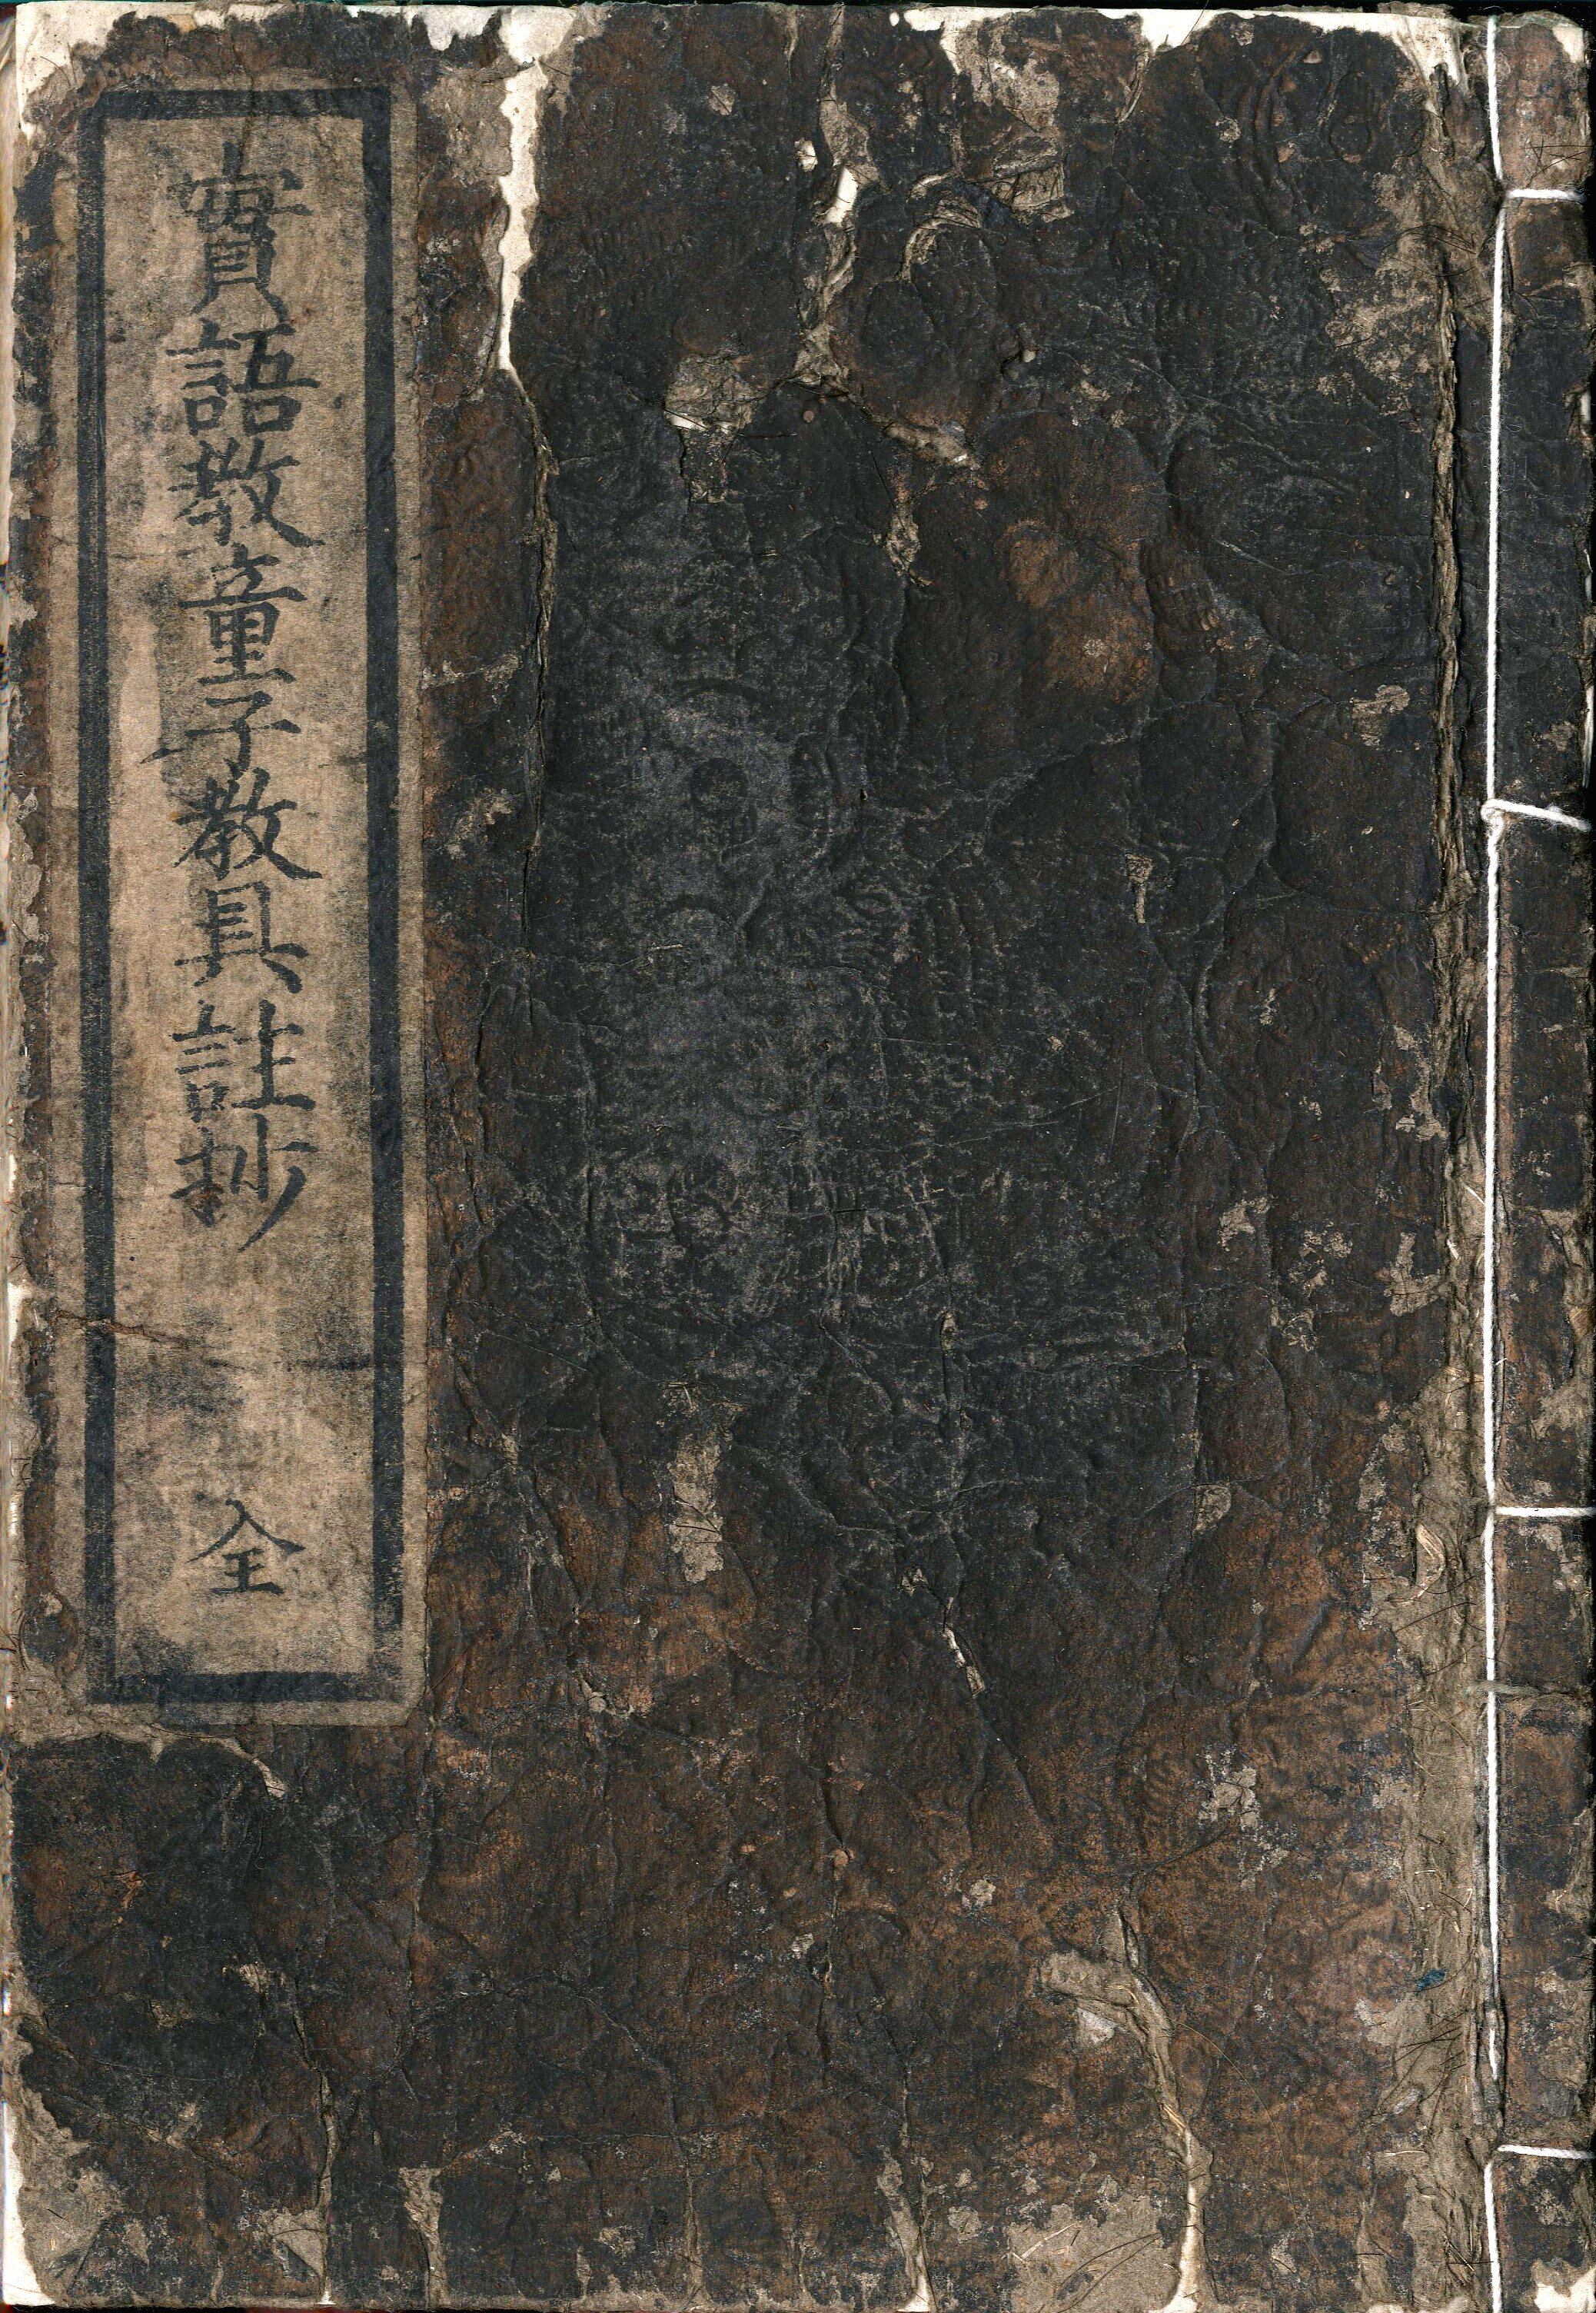 實語教童子教具註抄 全